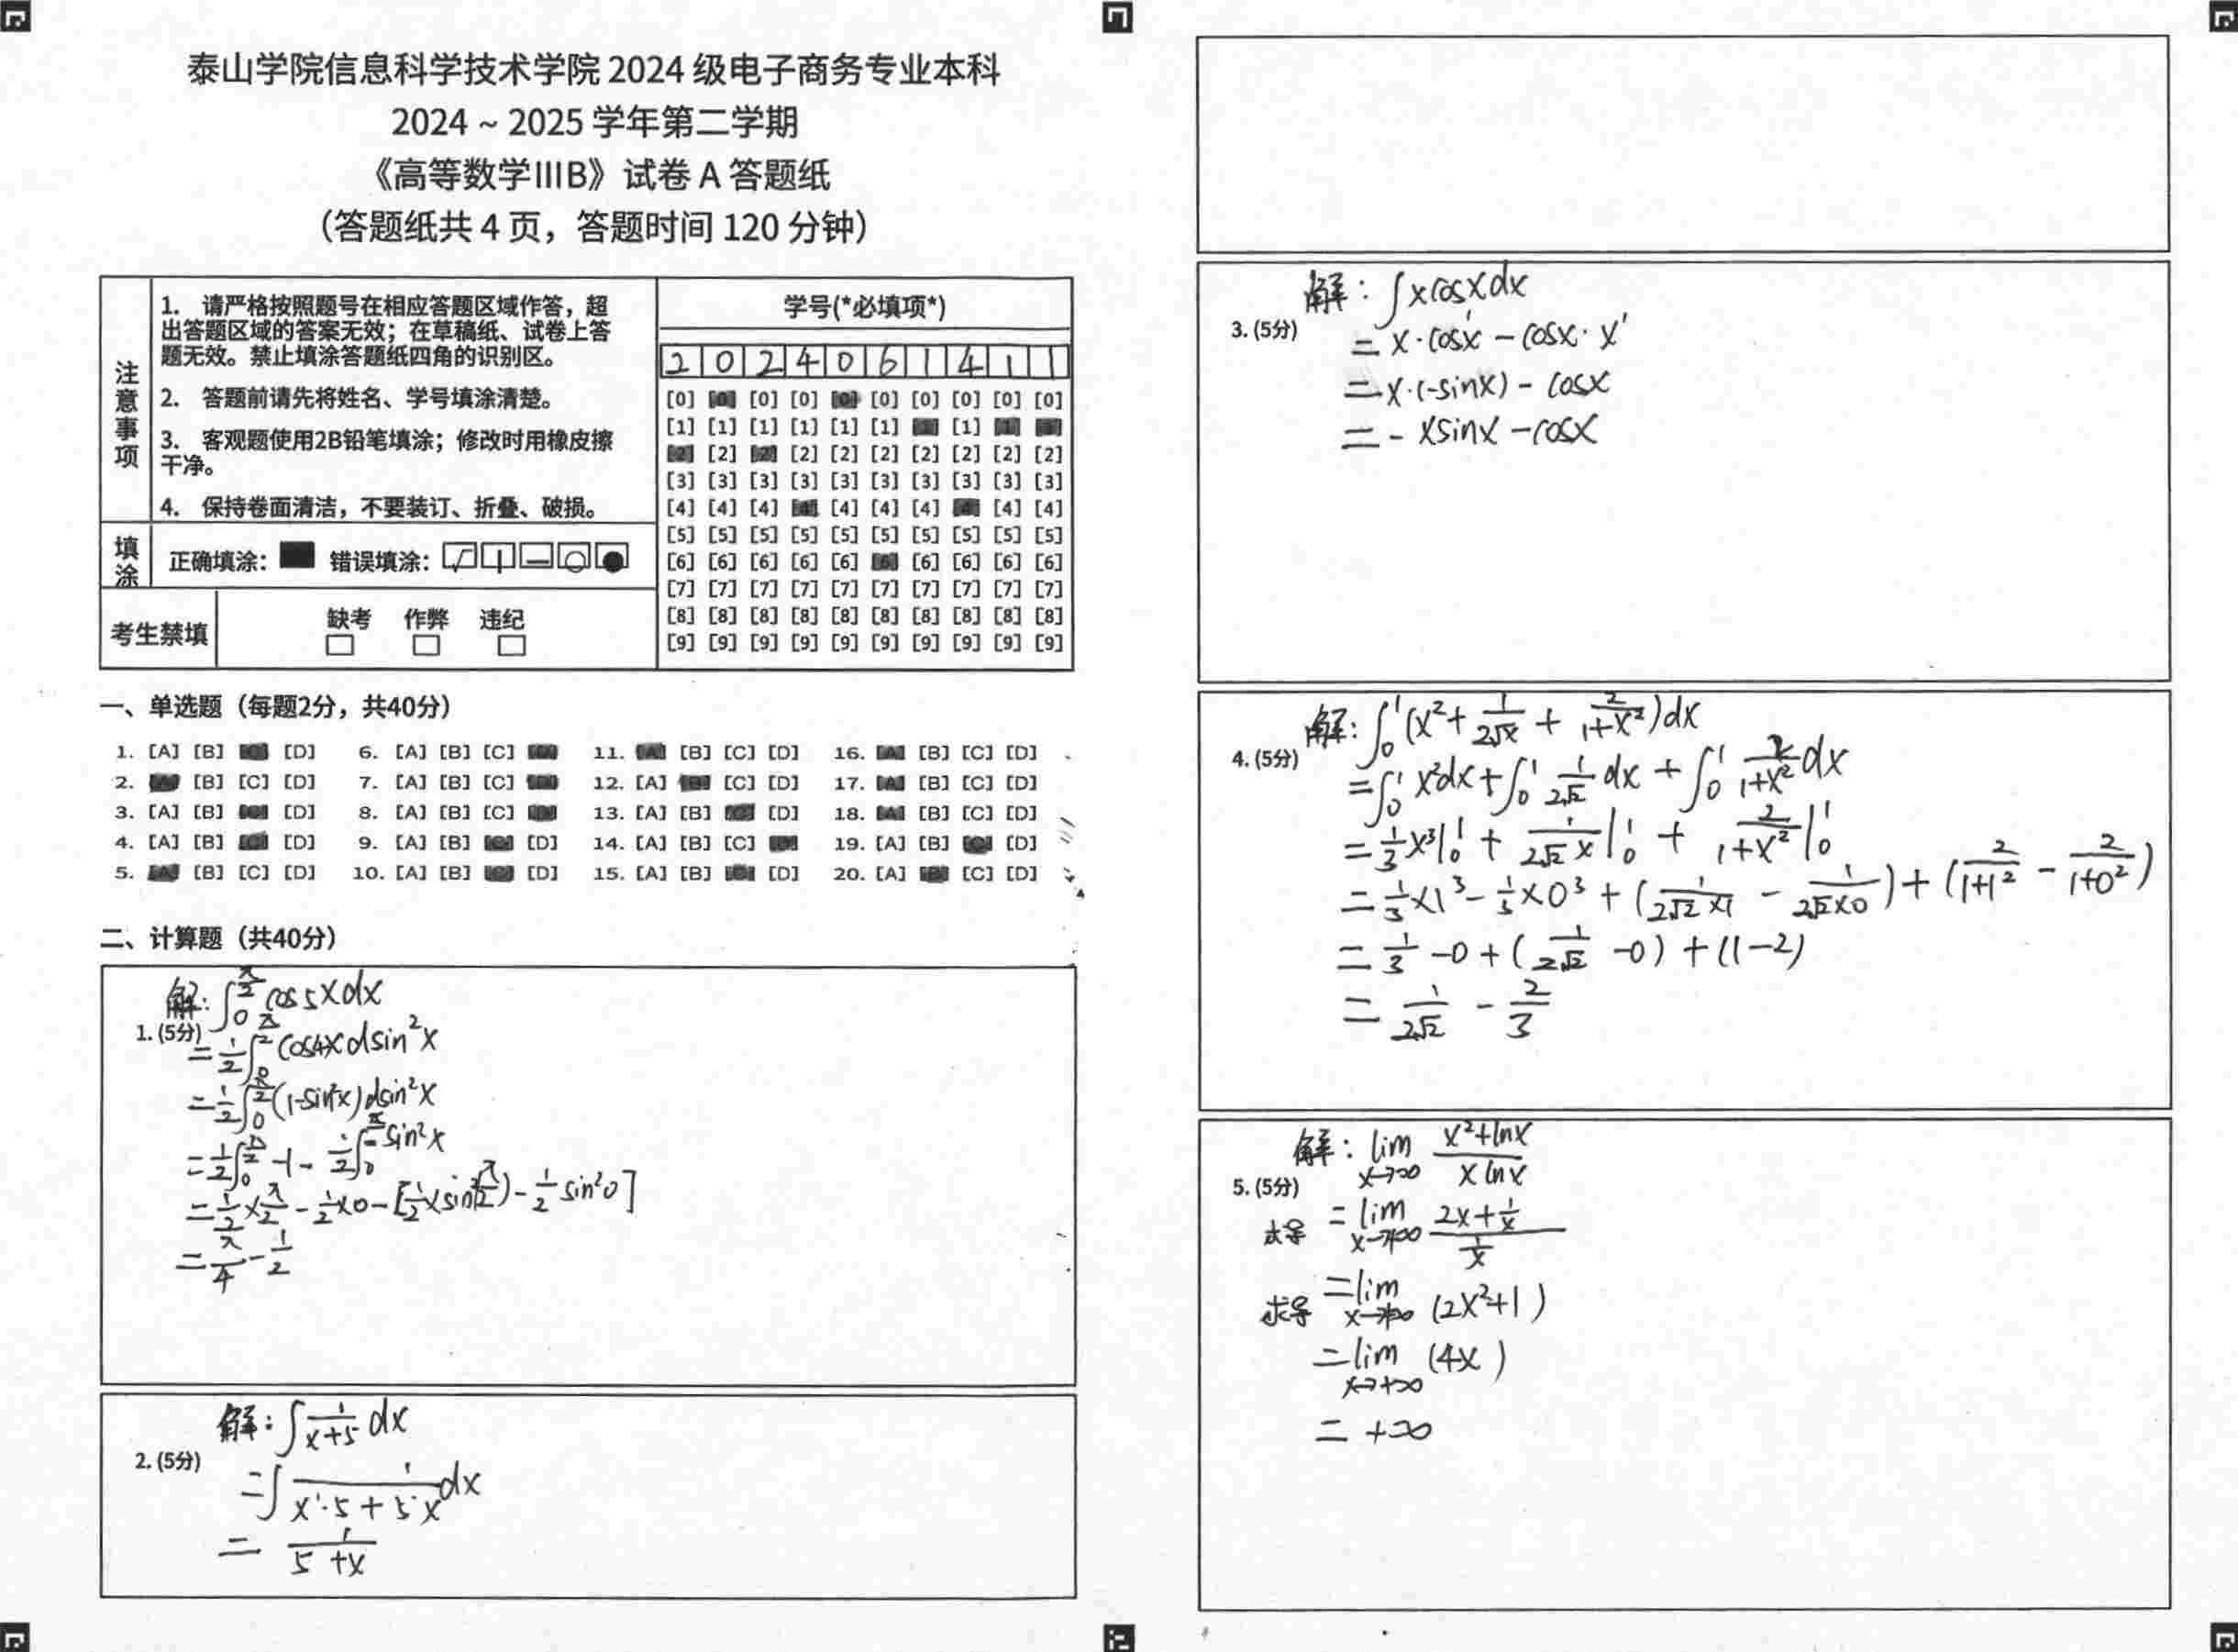 泰山学院信息科学技术学院 2024 级电子商务专业本科
2024 ~ 2025 学年第二学期
《高等数学IIIB》试卷 A 答题纸
（答题纸共 4 页，答题时间 120 分钟）
注意事项
1. 请严格按照题号在相应答题区域作答，超
出答题区域的答案无效；在草稿纸、试卷上答
题无效。禁止填涂答题纸四角的识别区。
2. 答题前请先将姓名、学号填涂清楚。
3. 客观题使用2B铅笔填涂；修改时用橡皮擦
干净。
4. 保持卷面清洁，不要装订、折叠、破损。
填涂
正确填涂： 错误填涂：
考生禁填
缺考 作弊 违纪
学号(*必填项*)
2 0 2 4 0 6 1 4 1 1
[0] [0] [0] [0] [0] [0] [0] [0]
[1] [1] [1] [1] [1] [1] [1]
[2] [2] [2] [2] [2] [2] [2] [2]
[3] [3] [3] [3] [3] [3] [3] [3] [3] [3]
[4] [4] [4] [4] [4] [4] [4] [4]
[5] [5] [5] [5] [5] [5] [5] [5] [5] [5]
[6] [6] [6] [6] [6] [6] [6] [6] [6]
[7] [7] [7] [7] [7] [7] [7] [7] [7] [7]
[8] [8] [8] [8] [8] [8] [8] [8] [8] [8]
[9] [9] [9] [9] [9] [9] [9] [9] [9] [9]
一、单选题（每题2分，共40分）
1. [A] [B] [D] 6. [A] [B] [C] 11. [B] [C] [D] 16. [B] [C] [D]
2. [B] [C] [D] 7. [A] [B] [C] 12. [A] [C] [D] 17. [B] [C] [D]
3. [A] [B] [D] 8. [A] [B] [C] 13. [A] [B] [D] 18. [B] [C] [D]
4. [A] [B] [D] 9. [A] [B] [D] 14. [A] [B] [C] 19. [A] [B] [D]
5. [B] [C] [D] 10. [A] [B] [D] 15. [A] [B] [D] 20. [A] [C] [D]
二、计算题（共40分）
1. (5分)
解: ∫₀^(π/2) cos5xdx
= 1/2 ∫₀^(π/2) cos4xdsin²x
= 1/2 ∫₀^(π/2) (1-sin²x)dsin²x
= 1/2 ∫₀^(π/2) -1 - 1/2 ∫₀^(π/2) sin²x
= 1/2 × π/2 - 1/2 ×0 - [1/2 × sin²(π/2) - 1/2 sin²0]
= π/4 - 1/2
2. (5分)
解: ∫ 1/(x+5) dx
= ∫ 1/(x'·5 + 5'x) dx
= 1/(5+x)
3. (5分)
解: ∫xcosxdx
= x·cos'x - cosx·x'
= x·(-sinx) - cosx
= - xsinx - cosx
4. (5分)
解: ∫₀¹ (x² + 1/(2√x) + 2/(1+x²))dx
= ∫₀¹ x²dx + ∫₀¹ 1/(2√2) dx + ∫₀¹ 2/(1+x²) dx
= 1/3 x³|₀¹ + 1/(2√2 x)|₀¹ + 2/(1+x²)|₀¹
= 1/3 ×1³ - 1/3 ×0³ + (1/(2√2×1) - 1/(2√2×0)) + (2/(1+1²) - 2/(1+0²))
= 1/3 -0 + (1/(2√2) -0) + (1-2)
= 1/(2√2) - 2/3
5. (5分)
解: lim x→∞ (x²+lnx)/(x lnx)
求导 = lim x→+∞ (2x+1/x)/(1/x)
求导 = lim x→+∞ (2x²+1)
= lim x→+∞ (4x)
= +∞